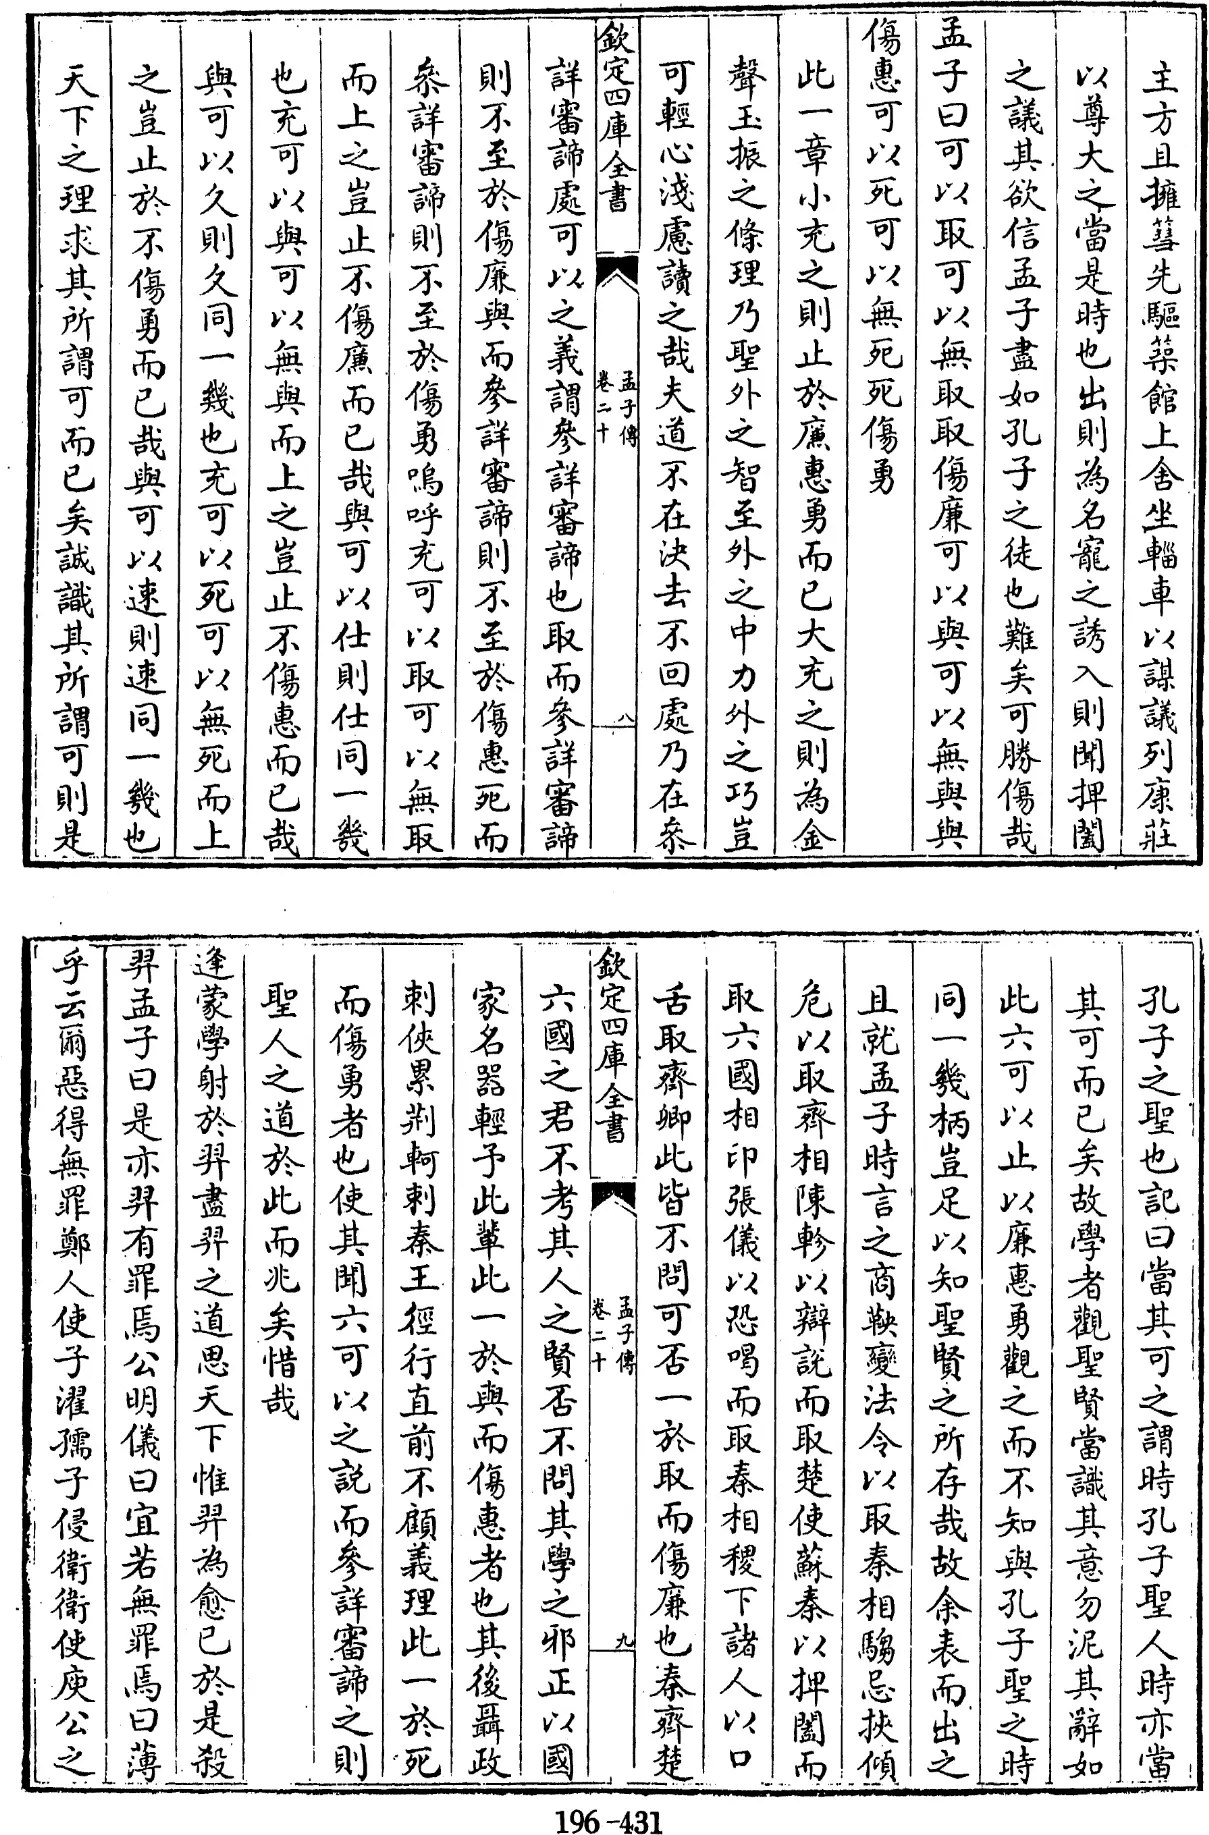 主方且擁篲先驅築館上舍坐輜車以謀議列康莊
以尊大之當是時也出則為名寵之誘入則聞捭闔
之議其欲信孟子盡如孔子之徒也難矣可勝傷哉
孟子曰可以取可以無取取傷廉可以與可以無與與
傷惠可以死可以無死死傷勇
此一章小充之則止於廉惠勇而已大充之則為金
聲玉振之條理乃聖外之智至外之中力外之巧豈
可輕心淺慮讀之哉夫道不在決去不回處乃在叅
欽定四庫全書
孟子傳
卷二十
八
詳審諦處可以之義謂參詳審諦也取而參詳審諦
則不至於傷廉與而參詳審諦則不至於傷惠死而
叅詳審諦則不至於傷勇嗚呼充可以取可以無取
而上之豈止不傷廉而已哉與可以仕則仕同一幾
也充可以與可以無與而上之豈止不傷惠而已哉
與可以久則久同一幾也充可以死可以無死而上
之豈止於不傷勇而已哉與可以速則速同一幾也
天下之理求其所謂可而已矣誠識其所謂可則是
孔子之聖也記曰當其可之謂時孔子聖人時亦當
其可而已矣故學者觀聖賢當識其意勿泥其辭如
此六可以止以廉惠勇觀之而不知與孔子聖之時
同一幾柄豈足以知聖賢之所存哉故余表而出之
且就孟子時言之商鞅變法令以取秦相騶忌挾傾
危以取齊相陳軫以辯説而取楚使蘇秦以捭闔而
取六國相印張儀以恐喝而取秦相稷下諸人以口
舌取齊卿此皆不問可否一於取而傷廉也秦齊楚
欽定四庫全書
孟子傳
卷二十
九
六國之君不考其人之賢否不問其學之邪正以國
家名器輕予此輩此一於與而傷惠者也其後聶政
刺俠累荆軻刺秦王徑行直前不顧義理此一於死
而傷勇者也使其聞六可以之説而參詳審諦之則
聖人之道於此而兆矣惜哉
逢蒙學射於羿盡羿之道思天下惟羿為愈己於是殺
羿孟子曰是亦羿有罪焉公明儀曰宜若無罪焉曰薄
乎云爾惡得無罪鄭人使子濯孺子侵衛衛使庾公之
196-431